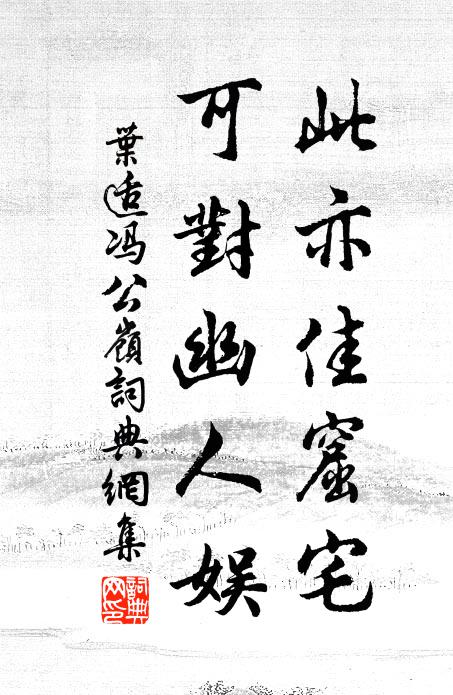 此亦佳窟宅
可對幽人娱
葉适冯公嶺詞典網集
詞典网印